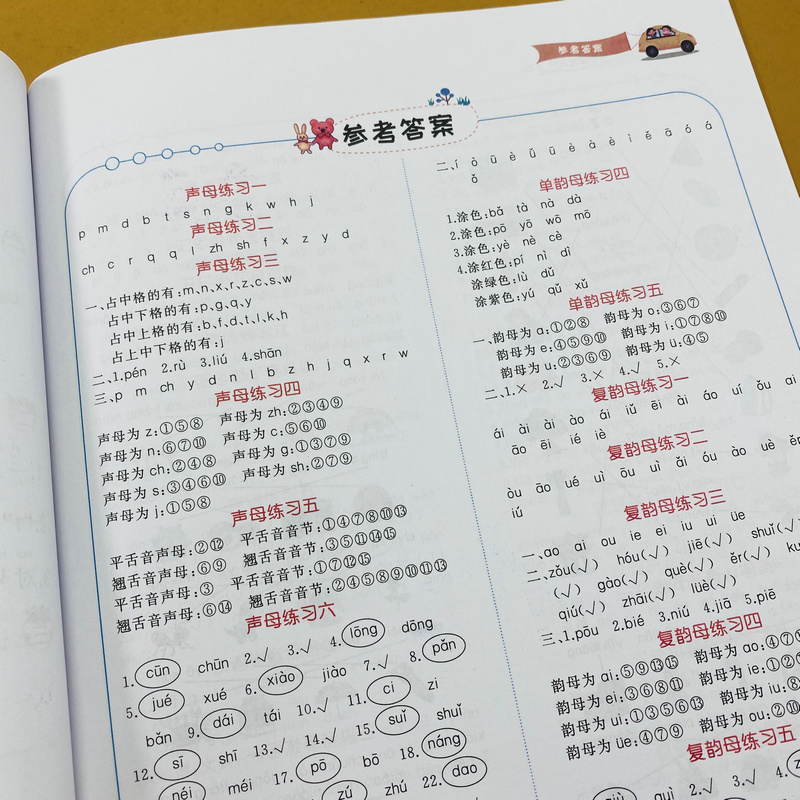 参考答案
参考答案
声母练习一
p m d b t s n g k w h j
声母练习二
ch c r q q l zh sh f x z y d
声母练习三
一、占中格的有:m、n、x、r、z、c、s、w
占中下格的有:p、g、q、y
占中上格的有:b、f、d、t、l、k、h
占上中下格的有:j
二、1.pén 2.rù 3.liú 4.shān
三、p m ch y d n l b z h j q x r w
声母练习四
声母为 z:①⑤⑧ 声母为 zh:②③④⑨
声母为 n:⑥⑦⑩ 声母为 c:⑤⑥⑩
声母为 ch:②④⑧ 声母为 g:①③⑦⑨
声母为 s:③④⑥⑩ 声母为 sh:②⑦⑨
声母为 j:①⑤⑧
声母练习五
平舌音声母:②⑫ 平舌音音节:①④⑦⑧⑩⑬
翘舌音声母:⑥⑨ 翘舌音音节:③⑤⑪⑭⑮
平舌音声母:③ 平舌音音节:①⑦⑫⑮
翘舌音声母:⑥⑭ 翘舌音音节:②④⑤⑧⑨⑩⑪⑬
声母练习六
1.cūn chūn 2.√ 3.√ 4.lōng dōng
5.jué xué 6.xiào jiào 7.√ 8.pǎn
bǎn 9.dái tái 10.√ 11.ci zi
12.sī shī 13.√ 14.√ 15.suǐ shuǐ
néi méi 17.pō bō 18.náng
zú zhú 22.dao
二、í ò ū è ǔ ū è à è ì ě ā ó á
ǒ
单韵母练习四
1.涂色:bǎ tà nà dà
2.涂色:pō yō wō mō
3.涂色:yè nè cè
4.涂红色:pí nì dì
涂绿色:lù dǔ
涂紫色:yú qǔ xǔ
单韵母练习五
一、韵母为 a:①②⑧ 韵母为 o:③⑥⑦
韵母为 e:④⑤⑨⑩ 韵母为 i:①⑦⑧⑩
韵母为 u:②③⑥⑨ 韵母为 ü:④⑤
二、1.× 2.√ 3.× 4.√ 5.×
复韵母练习一
ái ài ài ào ái iǔ ēi ài áo uí ǒu ai
āo ēi ié iè
复韵母练习二
òu āo ué uì ōu uì ǎi óu ào uè
iú
复韵母练习三
一、ao ai ou ie ei iu ui üe
二、zǒu(√) hóu(√) jiē(√) shuǐ(
(√) gào(√) què(√) ěr(√) ku
qiú(√) zhāi(√) lüè(√)
三、1.pōu 2.bié 3.niú 4.jiā 5.piē
复韵母练习四
韵母为 ai:⑤⑨⑬⑮ 韵母为 ao:④⑦
韵母为 ei:③⑥⑧⑪ 韵母为 ie:①②
韵母为 ui:①③⑤⑥⑬ 韵母为 iu:⑧
韵母为 üe:④⑦⑨ 韵母为 ou:②⑩
复韵母练习五
quì 2.√ 3.√ 4.